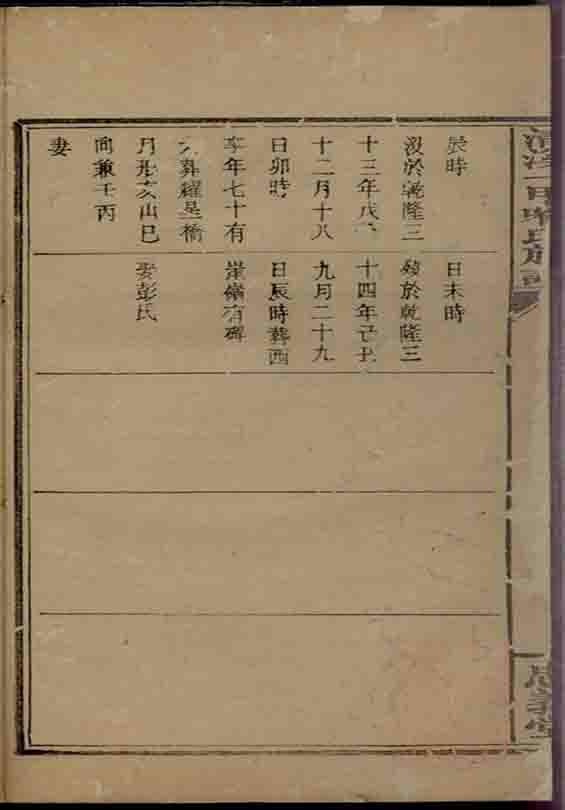 辰時
沒於乾隆三
十三年戊
十二月十八
日卯時
享年七十有
葬橋
月形亥山巳
向兼壬丙
妻
日未時
歿於乾隆三
十四年己丑
九月二十九
日辰時葬西
嶺有碑
娶彭氏
氏族
義堂